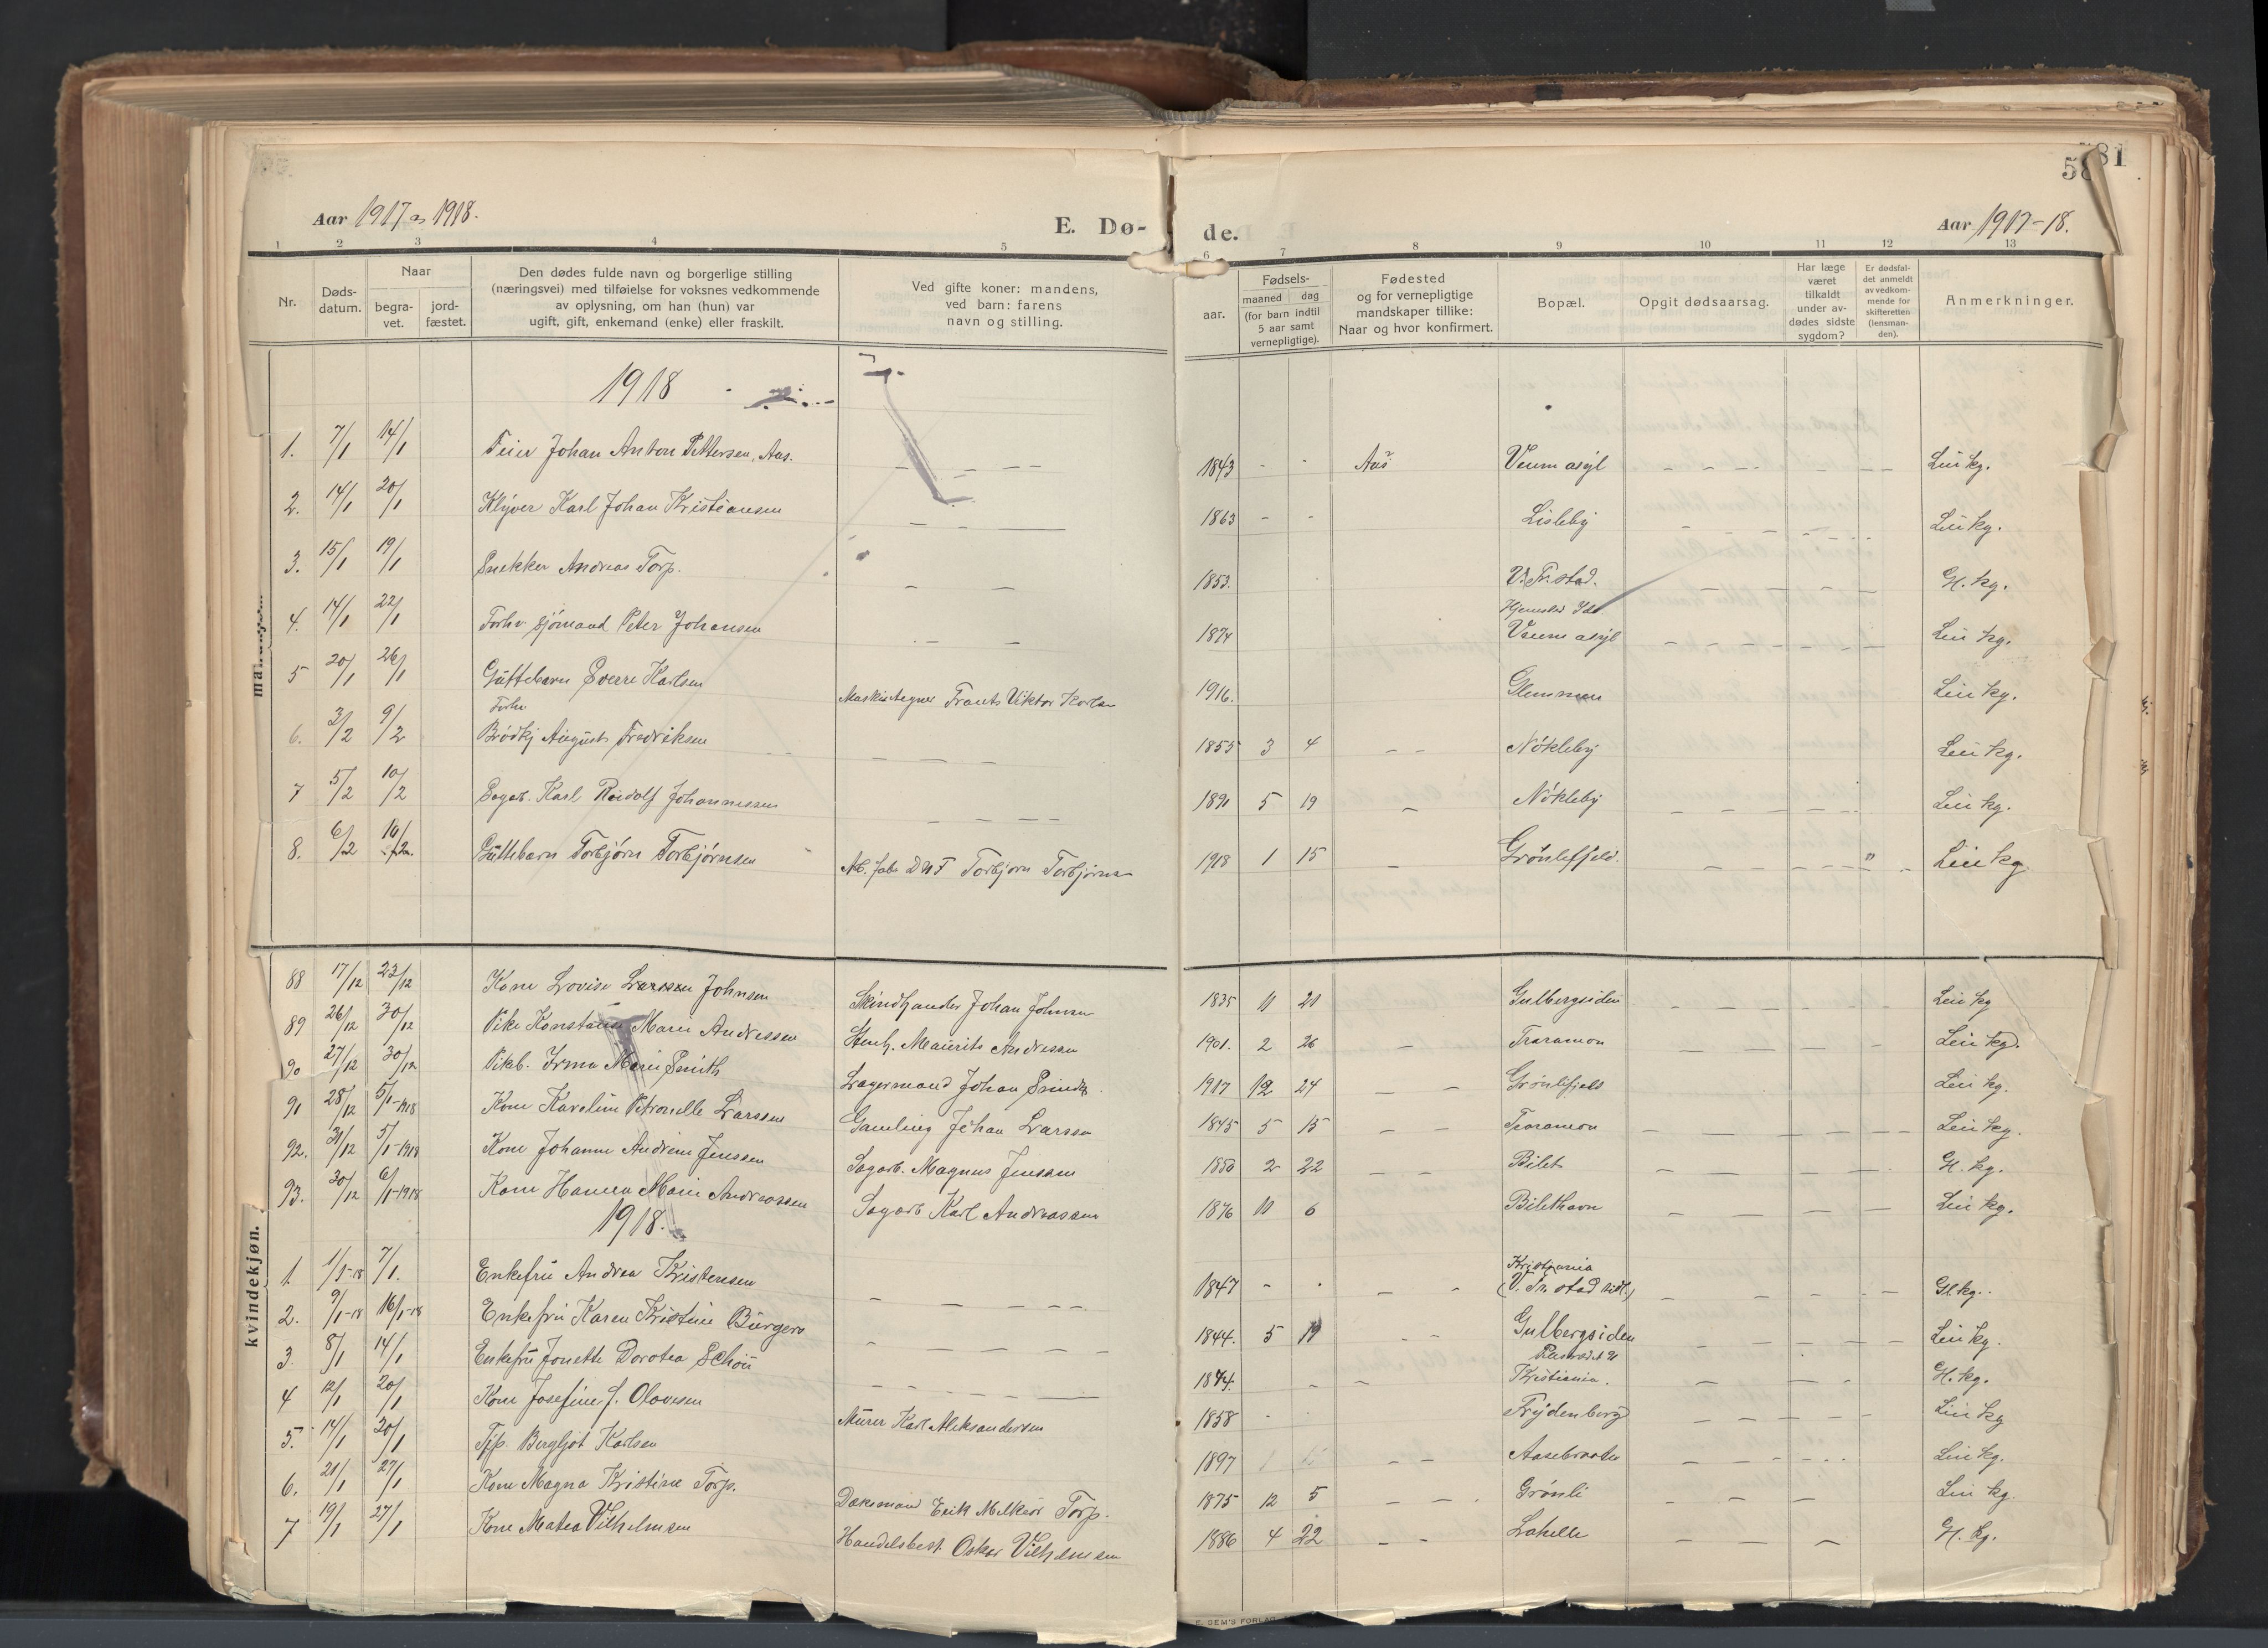 581
58
Aar 1917 og 1918.
E. Dø-
de.
Aar 1917-18.
1 2 3 4 5 6 7 8 9 10 11 12 13
Nr.
Døds-
datum.
Naar
begra-
vet.
jord-
fæstet.
Den dødes fulde navn og borgerlige stilling
(næringsvei) med tilføielse for voksnes vedkommende
av oplysning, om han (hun) var
ugift, gift, enkemand (enke) eller fraskilt.
Ved gifte koner: mandens,
ved barn: farens
navn og stilling.
aar.
Fødsels-
maaned dag
(for barn indtil
5 aar samt
vernepligtige).
Fødested
og for vernepligtige
mandskaper tillike:
Naar og hvor konfirmert.
Bopæl.
Opgit dødsaarsag.
Har læge
været
tilkaldt
under av-
dødes sidste
sygdom?
Er dødsfal-
det anmeldt
av vedkom-
mende for
skifteretten
(lensman-
den).
Anmerkninger.
1918
1. 7/1 14/1 Feier Johan Anton Pettersen, Aas. - - - - 1843 - - Aas Veum asyl - - - - - Leie kg.
2. 14/1 20/1 Klyver Karl Johan Kristiansen - - - 1863 - - Lisleby - - - - - Leie kg.
3. 15/1 19/1 Snekker Andreas Torp. - - 1853. V. Fr.stad. - - - - - Gl. kg.
4. 14/1 22/1 Forhv sjømand Peter Johansen - - 1874 Hjemsted Ide
Veum asyl - - - - - Leie kg.
5 20/1 26/1 Guttebarn Sverre Karlsen Maskintegner Frants Viktor Karlsen 1916. Glemmen Leie kg.
Forhv
6. 3/2 9/2 Brødkj August Fredriksen - - - - 1855 3 4 - - Nøkleby - - - - Leie kg.
7 5/2 10/2 Sagarb. Karl Reidolf Johannessen - - - - 1891 5 19 - Nøkleby - - - - Leie kg.
8. 6/2 10/2. Guttebarn Torbjørn Torbjørnsen Arb. fabr D N F Torbjørn Torbjørnsen 1918 1 15 - Grønlifjeld. - - - - - Leie kg
88 17/12 23/12 Kone Lovise Larssen Johnsen Skindhandler Johan Johnsen 1835 11 20 Gulbergsiden - - - - - Leie kg
89 26/12 30/12 Pike Konstanse Marie Andressen Stenh. Maurits Andressen 1901. 2 26 - Traramon - - - - Leie kg.
90 27/12 30/12 Pikeb. Irma Marie Smith Lagermand Johan Smith 1917 12 24 - - Grønlifjeld Leie kg.
91 28/12 5/1-1918 Kone Karoline Petronelle Larssen Gamling Johan Larssen 1845 5 15 - - Traramon - - - - - Leie kg.
92. 31/12 5/1-1918 Kone Johanne Andrine Jenssen Sagarb. Magnus Jenssen 1850 2 22 - - Bilet - - - - Gl. kg.
93. 30/12 6/1-1918 Kone Hanna Marie Andreassen Sagarb Karl Andreassen 1876 11 6 Bilethavn - - - - Leie kg.
1918.
1. 1/1-18 7/1. Enkefru Andrea Kristensen - - - - - 1847 - . - - Kristiania
(V. Fr. stad tidl.) - - - - - Gl. kg.
2. 9/1-18 16/1-18 Enkefru Karen Kristine Bürgers - - - - - 1844. 5 19 - - Gulbergsiden - - - - - Leie kg.
3. 8/1 14/1 Enkefru Jonette Dorotea Schou - - - - - - 1844. - - Kristiania. - - - Gl. kg.
4 12/1 20/1 Kone Josefine J. Olavesen Murer Karl Aleksandersen 1858 - . Frydenberg - - - - - Leie kg
5. 14/1 20/1 Tjp. Bergljot Karlsen 1897 - - Aasebraaten - - - - - Leie kg.
6. 21/1 27/1 Kone Magna Kristine Torp. Dæksmand Erik Melkior Torp. 1875 12 5 - - Grønli - - - Leie kg.
7 19/1 27/1 Kone Matea Vilhelmsen Handelsbest. Oskar Vilhelmsen 1886 4 22 - - Lahelle - - - Gl. kg.
kvindekjøn.